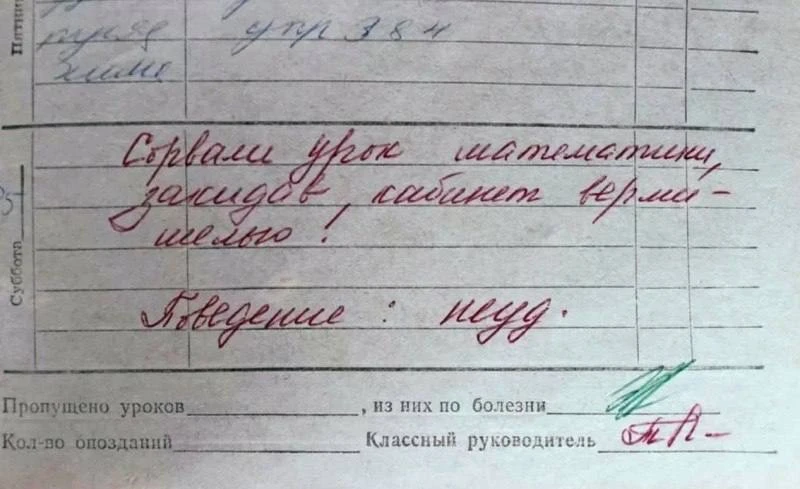 Пятниц
упр 384
химия
Сорвали урок математики,
закидав кабинет верми-
шелью!
Поведение: неуд.
Суббота
Пропущено уроков , из них по болезни
Кол-во опозданий Классный руководитель